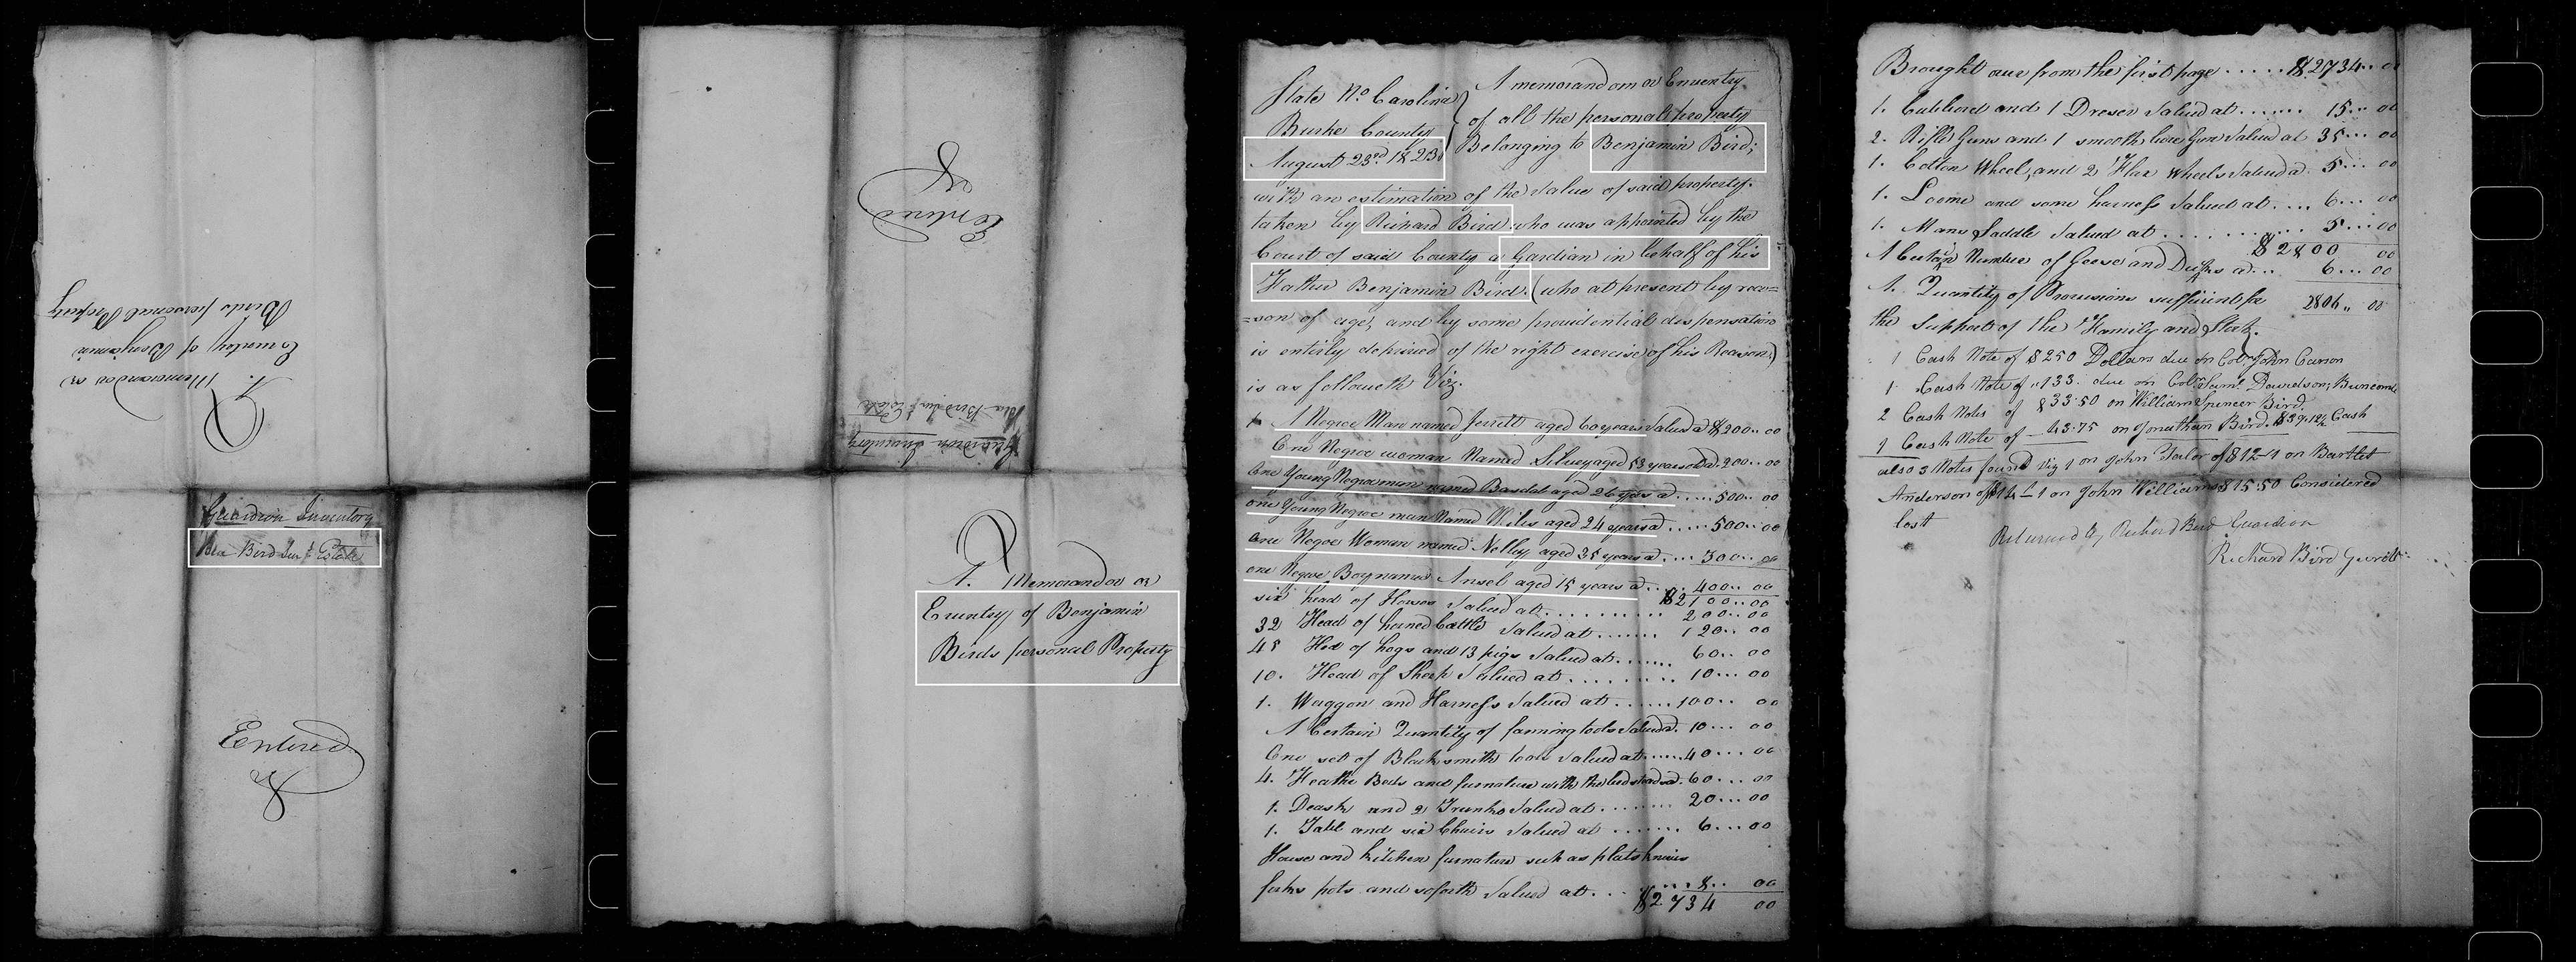 A. Memorandow or
Enventry of Benjamin
Birds personal Property
Guardian Inventory
Ben Bird Sen.r Estate
Entered
Entered
Guardian Inventory
Ben Bird Sen.r Estate
A. Memorandow or
Enventry of Benjamin
Birds personal Property
State No. Carolina
Burke County
August 23rd. 1823
A memorandom or Enventry
of all the personal property
Belonging to Benjamin Bird;
with an estimation of the value of said property.
taken by Richard Bird who was appointed by the
Court of said County a Gardian in behalf of his
Father Benjamin Bird. (who at present by rea=
=son of age, and by some providential despensation
is entirly deprived of the right exercise of his Reason.)
is as followeth Viz.
1 Negroe Man named Jerrett aged 60 years valued a $200.. 00
One Negroe woman Named Silvey aged 53 years old a. 200.. 00
One Young Negroe man named aged 26 years a ..... 500.. 00
one Young Negroe man Named Miles aged 24 years a ..... 500.. 00
one Negroe Woman named Nelley aged 35 years a .... 300.. 00
one Negroe Boy named Ansel aged 15 years a ..... 400.. 00
$2100.. 00
six head of Horses Valued at .......... 200.. 00
32 Head of horned Cattle Valued at ...... 120.. 00
48 Hed of hogs and 13 pigs Valued at ...... 60... 00
10. Head of Sheep Valued at ......... 10... 00
1. Waggon and Harness Valued at ...... 100.. 00
A Certain Quantity of farming tools Valued a. 10... 00
One set of Black smith tools valued at ..... 40... 00
4. Feathe Beds and furnature with the bedsteads a. 60.... 00
1. Desk and 2 Trunks Valued at ........ 20... 00
1. Tabl and six Chairs Valued at ....... 6... 00
House and kitchen furnature such as plats knives
forks pots and soforth Valued at ... ... 8... 00
$2734 00
Brought over from the first page ..... $2734.. 00
1. Cubbord and 1 Dreser Valued at ...... 15... 00
2. Rifle Guns and 1 smooth bore Gun Valued at 35... 00
1. Cotton Wheel, and 2 Flax Wheels Valued a. 5... 00
1. Loome and some harness Valued at .... 6... 00
1. Mans Saddle Valued at .......... 5... 00
$2800 00
A Certain Number of Geese and Ducks a ... 6... 00
2806 ,, 00
A. Quantity of Provisions sufficient for
the Support of the Family and Stock.
1 Cash Note of $250 Dollars due on Coln. John Carson
1 Cash Note of 133. due on Coln. Saml. Davidson, Buncombe
2 Cash Notes of $33.50 on William Spencer Bird.
1 Cash Note of 43.75 on Jonathan Bird. $39.12½ Cash
also 3 Notes found Viz 1 on John Talor of $12 - 1 on Bartlet
Anderson of $14 - 1 on John Williams $15.50 Considered
lost
Returned by Richard Bird Guardian
Richard Bird